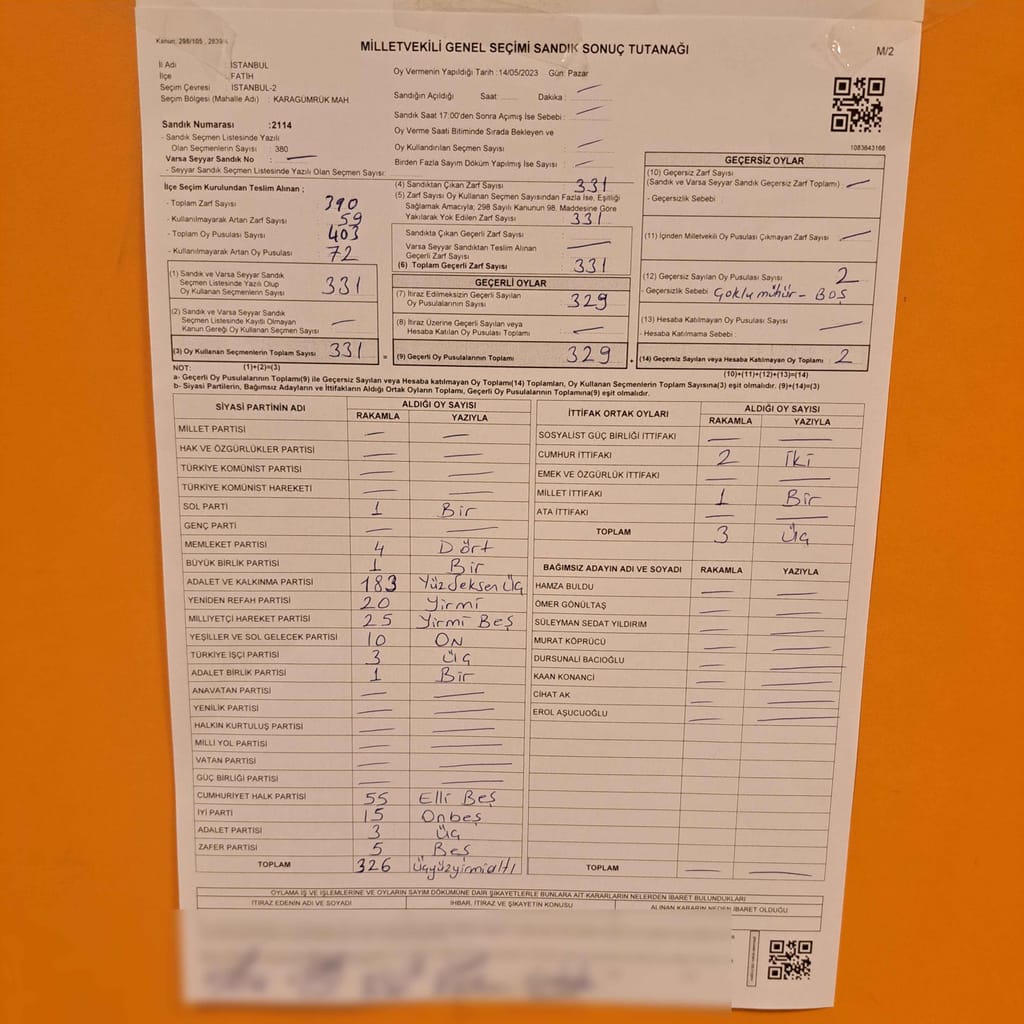 Kanun: 298/105, 2839
MİLLETVEKİLİ GENEL SEÇİMİ SANDIK SONUÇ TUTANAĞI
M/2
İl Adı : İSTANBUL
İlçe : FATİH
Seçim Çevresi : İSTANBUL-2
Seçim Bölgesi (Mahalle Adı) : KARAGÜMRÜK MAH
Sandık Numarası :2114
- Sandık Seçmen Listesinde Yazılı
Olan Seçmenlerin Sayısı : 380
Varsa Seyyar Sandık No : —
- Seyyar Sandık Seçmen Listesinde Yazılı Olan Seçmen Sayısı:
Oy Vermenin Yapıldığı Tarih :14/05/2023 Gün: Pazar
Sandığın Açıldığı Saat: Dakika : —
Sandık Saat 17:00'den Sonra Açımış İse Sebebi : —
Oy Verme Saati Bitiminde Sırada Bekleyen ve
Oy Kullandırılan Seçmen Sayısı —
Birden Fazla Sayım Döküm Yapılmış İse Sayısı : —
1083643166
İlçe Seçim Kurulundan Teslim Alınan ;
- Toplam Zarf Sayısı : 390
- Kullanılmayarak Artan Zarf Sayısı : 59
- Toplam Oy Pusulası Sayısı : 403
- Kullanılmayarak Artan Oy Pusulası : 72
(1) Sandık ve Varsa Seyyar Sandık
Seçmen Listesinde Yazılı Olup
Oy Kullanan Seçmenlerin Sayısı 331
(2) Sandık ve Varsa Seyyar Sandık
Seçmen Listesinde Kayıtlı Olmayan
Kanun Gereği Oy Kullanan Seçmen Sayısı —
(3) Oy Kullanan Seçmenlerin Toplam Sayısı 331
(1)+(2)=(3)
(4) Sandıktan Çıkan Zarf Sayısı 331
(5) Zarf Sayısı Oy Kullanan Seçmen Sayısından Fazla İse, Eşitliği
Sağlamak Amacıyla; 298 Sayılı Kanunun 98. Maddesine Göre
Yakılarak Yok Edilen Zarf Sayısı : 331
Sandıkta Çıkan Geçerli Zarf Sayısı :
Varsa Seyyar Sandıktan Teslim Alınan
Geçerli Zarf Sayısı : —
(6) Toplam Geçerli Zarf Sayısı : 331
GEÇERLİ OYLAR
(7) İtiraz Edilmeksizin Geçerli Sayılan
Oy Pusulalarının Sayısı : 329
(8) İtiraz Üzerine Geçerli Sayılan veya
Hesaba Katılan Oy Pusulası Toplamı : —
= (9) Geçerli Oy Pusulalarının Toplamı 329
GEÇERSİZ OYLAR
(10) Geçersiz Zarf Sayısı
(Sandık ve Varsa Seyyar Sandık Geçersiz Zarf Toplamı) : —
- Geçersizlik Sebebi :
(11) İçinden Milletvekili Oy Pusulası Çıkmayan Zarf Sayısı : —
(12) Geçersiz Sayılan Oy Pusulası Sayısı : 2
- Geçersizlik Sebebi Çoklu mühür - Boş
(13) Hesaba Katılmayan Oy Pusulası Sayısı : —
- Hesaba Katılmama Sebebi :
+ (14) Geçersiz Sayılan veya Hesaba Katılmayan Oy Toplamı : 2
(10)+(11)+(12)+(13)=(14)
NOT:
a- Geçerli Oy Pusulalarının Toplamı(9) ile Geçersiz Sayılan veya Hesaba Katılmayan Oy Toplamı(14) Toplamları, Oy Kullanan Seçmenlerin Toplam Sayısına(3) eşit olmalıdır. (9)+(14)=(3)
b- Siyasi Partilerin, Bağımsız Adayların ve İttifakların Aldığı Ortak Oyların Toplamı, Geçerli Oy Pusulalarının Toplamına(9) eşit olmalıdır.
SİYASİ PARTİNİN ADI ALDIĞI OY SAYISI
RAKAMLA YAZIYLA
MİLLET PARTİSİ — —
HAK VE ÖZGÜRLÜKLER PARTİSİ — —
TÜRKİYE KOMÜNİST PARTİSİ — —
TÜRKİYE KOMÜNİST HAREKETİ — —
SOL PARTİ 1 Bir
GENÇ PARTİ — —
MEMLEKET PARTİSİ 4 Dört
BÜYÜK BİRLİK PARTİSİ 1 Bir
ADALET VE KALKINMA PARTİSİ 183 YüzSeksen Üç
YENİDEN REFAH PARTİSİ 20 Yirmi
MİLLİYETÇİ HAREKET PARTİSİ 25 Yirmi Beş
YEŞİLLER VE SOL GELECEK PARTİSİ 10 ON
TÜRKİYE İŞÇİ PARTİSİ 3 Üç
ADALET BİRLİK PARTİSİ 1 Bir
ANAVATAN PARTİSİ — —
YENİLİK PARTİSİ — —
HALKIN KURTULUŞ PARTİSİ — —
MİLLİ YOL PARTİSİ — —
VATAN PARTİSİ — —
GÜÇ BİRLİĞİ PARTİSİ — —
CUMHURİYET HALK PARTİSİ 55 Elli Beş
İYİ PARTİ 15 Onbeş
ADALET PARTİSİ 3 Üç
ZAFER PARTİSİ 5 Beş
TOPLAM 326 Üçyüzyirmialtı
İTTİFAK ORTAK OYLARI ALDIĞI OY SAYISI
RAKAMLA YAZIYLA
SOSYALİST GÜÇ BİRLİĞİ İTTİFAKI — —
CUMHUR İTTİFAKI 2 İki
EMEK VE ÖZGÜRLÜK İTTİFAKI — —
MİLLET İTTİFAKI 1 Bir
ATA İTTİFAKI — —
TOPLAM 3 Üç
BAĞIMSIZ ADAYIN ADI VE SOYADI RAKAMLA YAZIYLA
HAMZA BULDU — —
ÖMER GÖNÜLTAŞ — —
SÜLEYMAN SEDAT YILDIRIM — —
MURAT KÖPRÜCÜ — —
DURSUNALİ BACIOĞLU — —
KAAN KONANCİ — —
CİHAT AK — —
EROL AŞUCUOĞLU — —
TOPLAM — —
OYLAMA İŞ VE İŞLEMLERİNE VE OYLARIN SAYIM DÖKÜMÜNE DAİR ŞİKAYETLERLE BUNLARA AİT KARARLARIN NELERDEN İBARET BULUNDUKLARI
İTİRAZ EDENİN ADI VE SOYADI İHBAR, İTİRAZ VE ŞİKAYETİN KONUSU ALINAN KARARIN NEDEN İBARET OLDUĞU